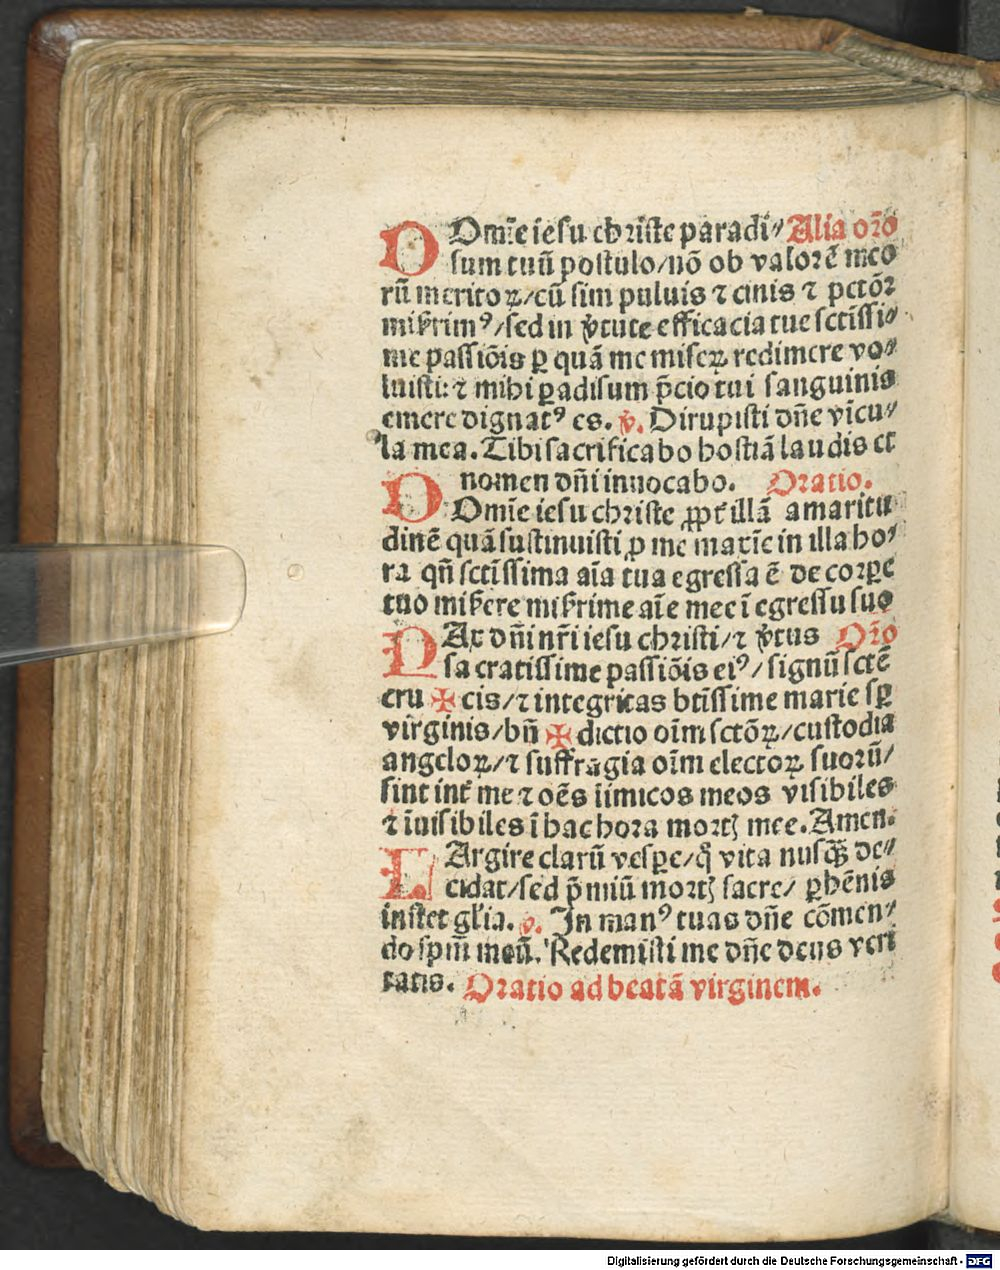 DOmīe iesu christe paradi⸗ Alia or̄o
sum tuū postulo/nō ob valorē meo
rū meritoꝝ/cū sim puluis ⁊ cinis ⁊ pctōꝝ
mis̄rimꝰ/sed in v̄tute efficacia tue sctīssi⸗
me passiōis ꝑ quā me miseꝝ redimere vo⸗
luisti: ⁊ mihi ꝑadisum p̄cio tui sanguinis
emere dignatꝰ es. v̄. Dirupisti dn̄e vīcu⸗
la mea. Tibi sacrificabo hostiā laudis et
nomen dn̄i inuocabo. Oratio.
DOmīe iesu christe ꝓpt̄ illā amaritu
dinē quā sustinuisti ꝓ me maxīe in illa ho⸗
ra qn̄ sctīssima aīa tua egressa ē de corꝑe
tuo mis̄ere mis̄rime aīe mee ī egressu suo
PAx dn̄i nr̄i iesu christi/⁊ v̄tus Or̄o
sacratissime passiōis eiꝰ/signū sctē
cru ✠ cis/⁊ integritas btīssime marie sꝑ
virginis/bn̄ ✠ dictio oīm sctōꝝ/custodia
angeloꝝ/⁊ suffragia oīm electoꝝ suorū/
sint int̄ me ⁊ oēs īimicos meos visibiles
⁊ īuisibiles ī hac hora mortꝭ mee. Amen.
LArgire clarū vesꝑe/q̄ vita nusꝗ̄ de⸗
cidat/sed p̄miū mortꝭ sacre/ ꝑhēnis
instet gl̄ia. v̄. In manꝰ tuas dn̄e cōmen⸗
do spm̄ meū. Redemisti me dn̄e deus veri
tatis. Oratio ad beatā virginem.
Digitalisierung gefördert durch die Deutsche Forschungsgemeinschaft - DFG